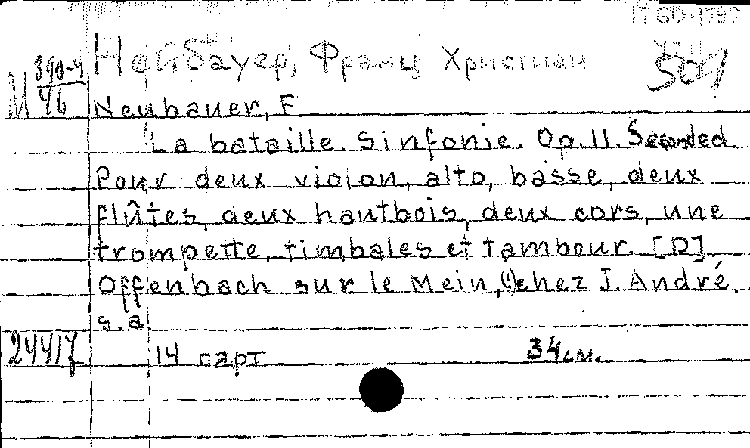 1760-1795
Нойбауер, Франц Христиан
М 390-4
46
501
Neubauer, F
La bataille. Sinfonie. Op. 11. Seconded
Pour deux violon, alto, basse, deux
flûtes, deux hautbois, deux cors, une
trompette, timbales et tambour. [D]
Offenbach sur le Mein, chez J. André.
s. a
24417
14 парт
34 см.